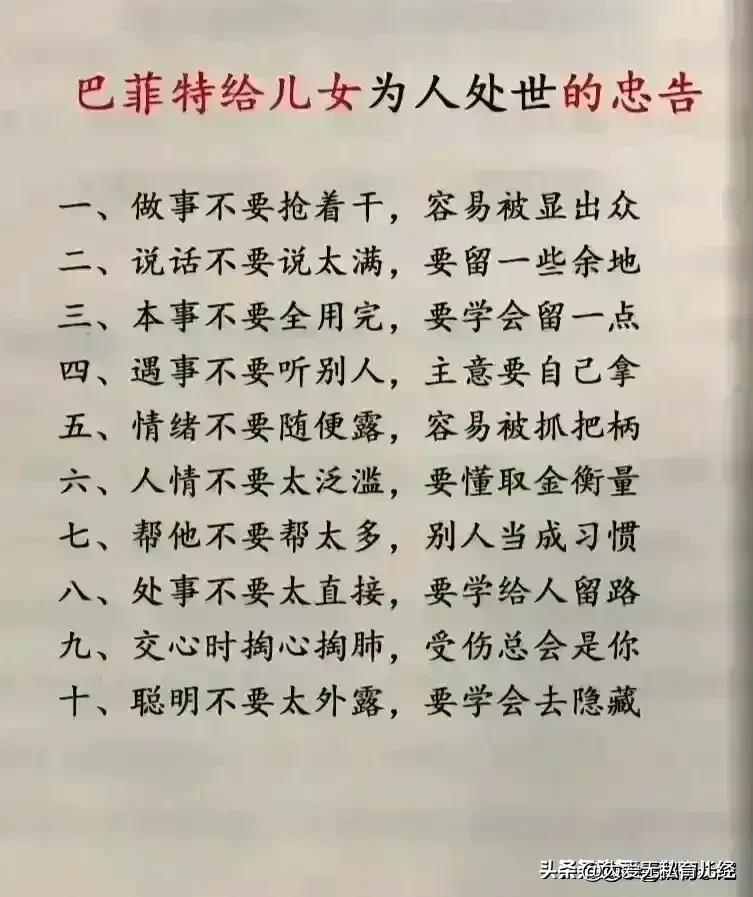 巴菲特给儿女为人处世的忠告
一、做事不要抢着干，容易被显出众
二、说话不要说太满，要留一些余地
三、本事不要全用完，要学会留一点
四、遇事不要听别人，主意要自己拿
五、情绪不要随便露，容易被抓把柄
六、人情不要太泛滥，要懂取金衡量
七、帮他不要帮太多，别人当成习惯
八、处事不要太直接，要学给人留路
九、交心时掏心掏肺，受伤总会是你
十、聪明不要太外露，要学会去隐藏
头条